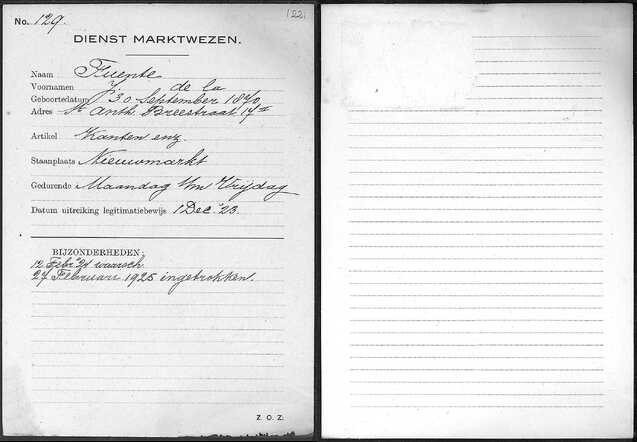 No. 129.
122
DIENST MARKTWEZEN.
Naam Fuente
Voornamen J. de la
Geboortedatum 30 September 1870
Adres St. Anth. Breestraat 17 II
Artikel Kanten enz.
Staanplaats Nieuwmarkt
Gedurende Maandag t/m Vrijdag
Datum uitreiking legitimatiebewijs 1 Dec. '23.
BIJZONDERHEDEN:
12 Febr. '24 waarsch.
27 Februari 1925 ingetrokken.
Z. O. Z.